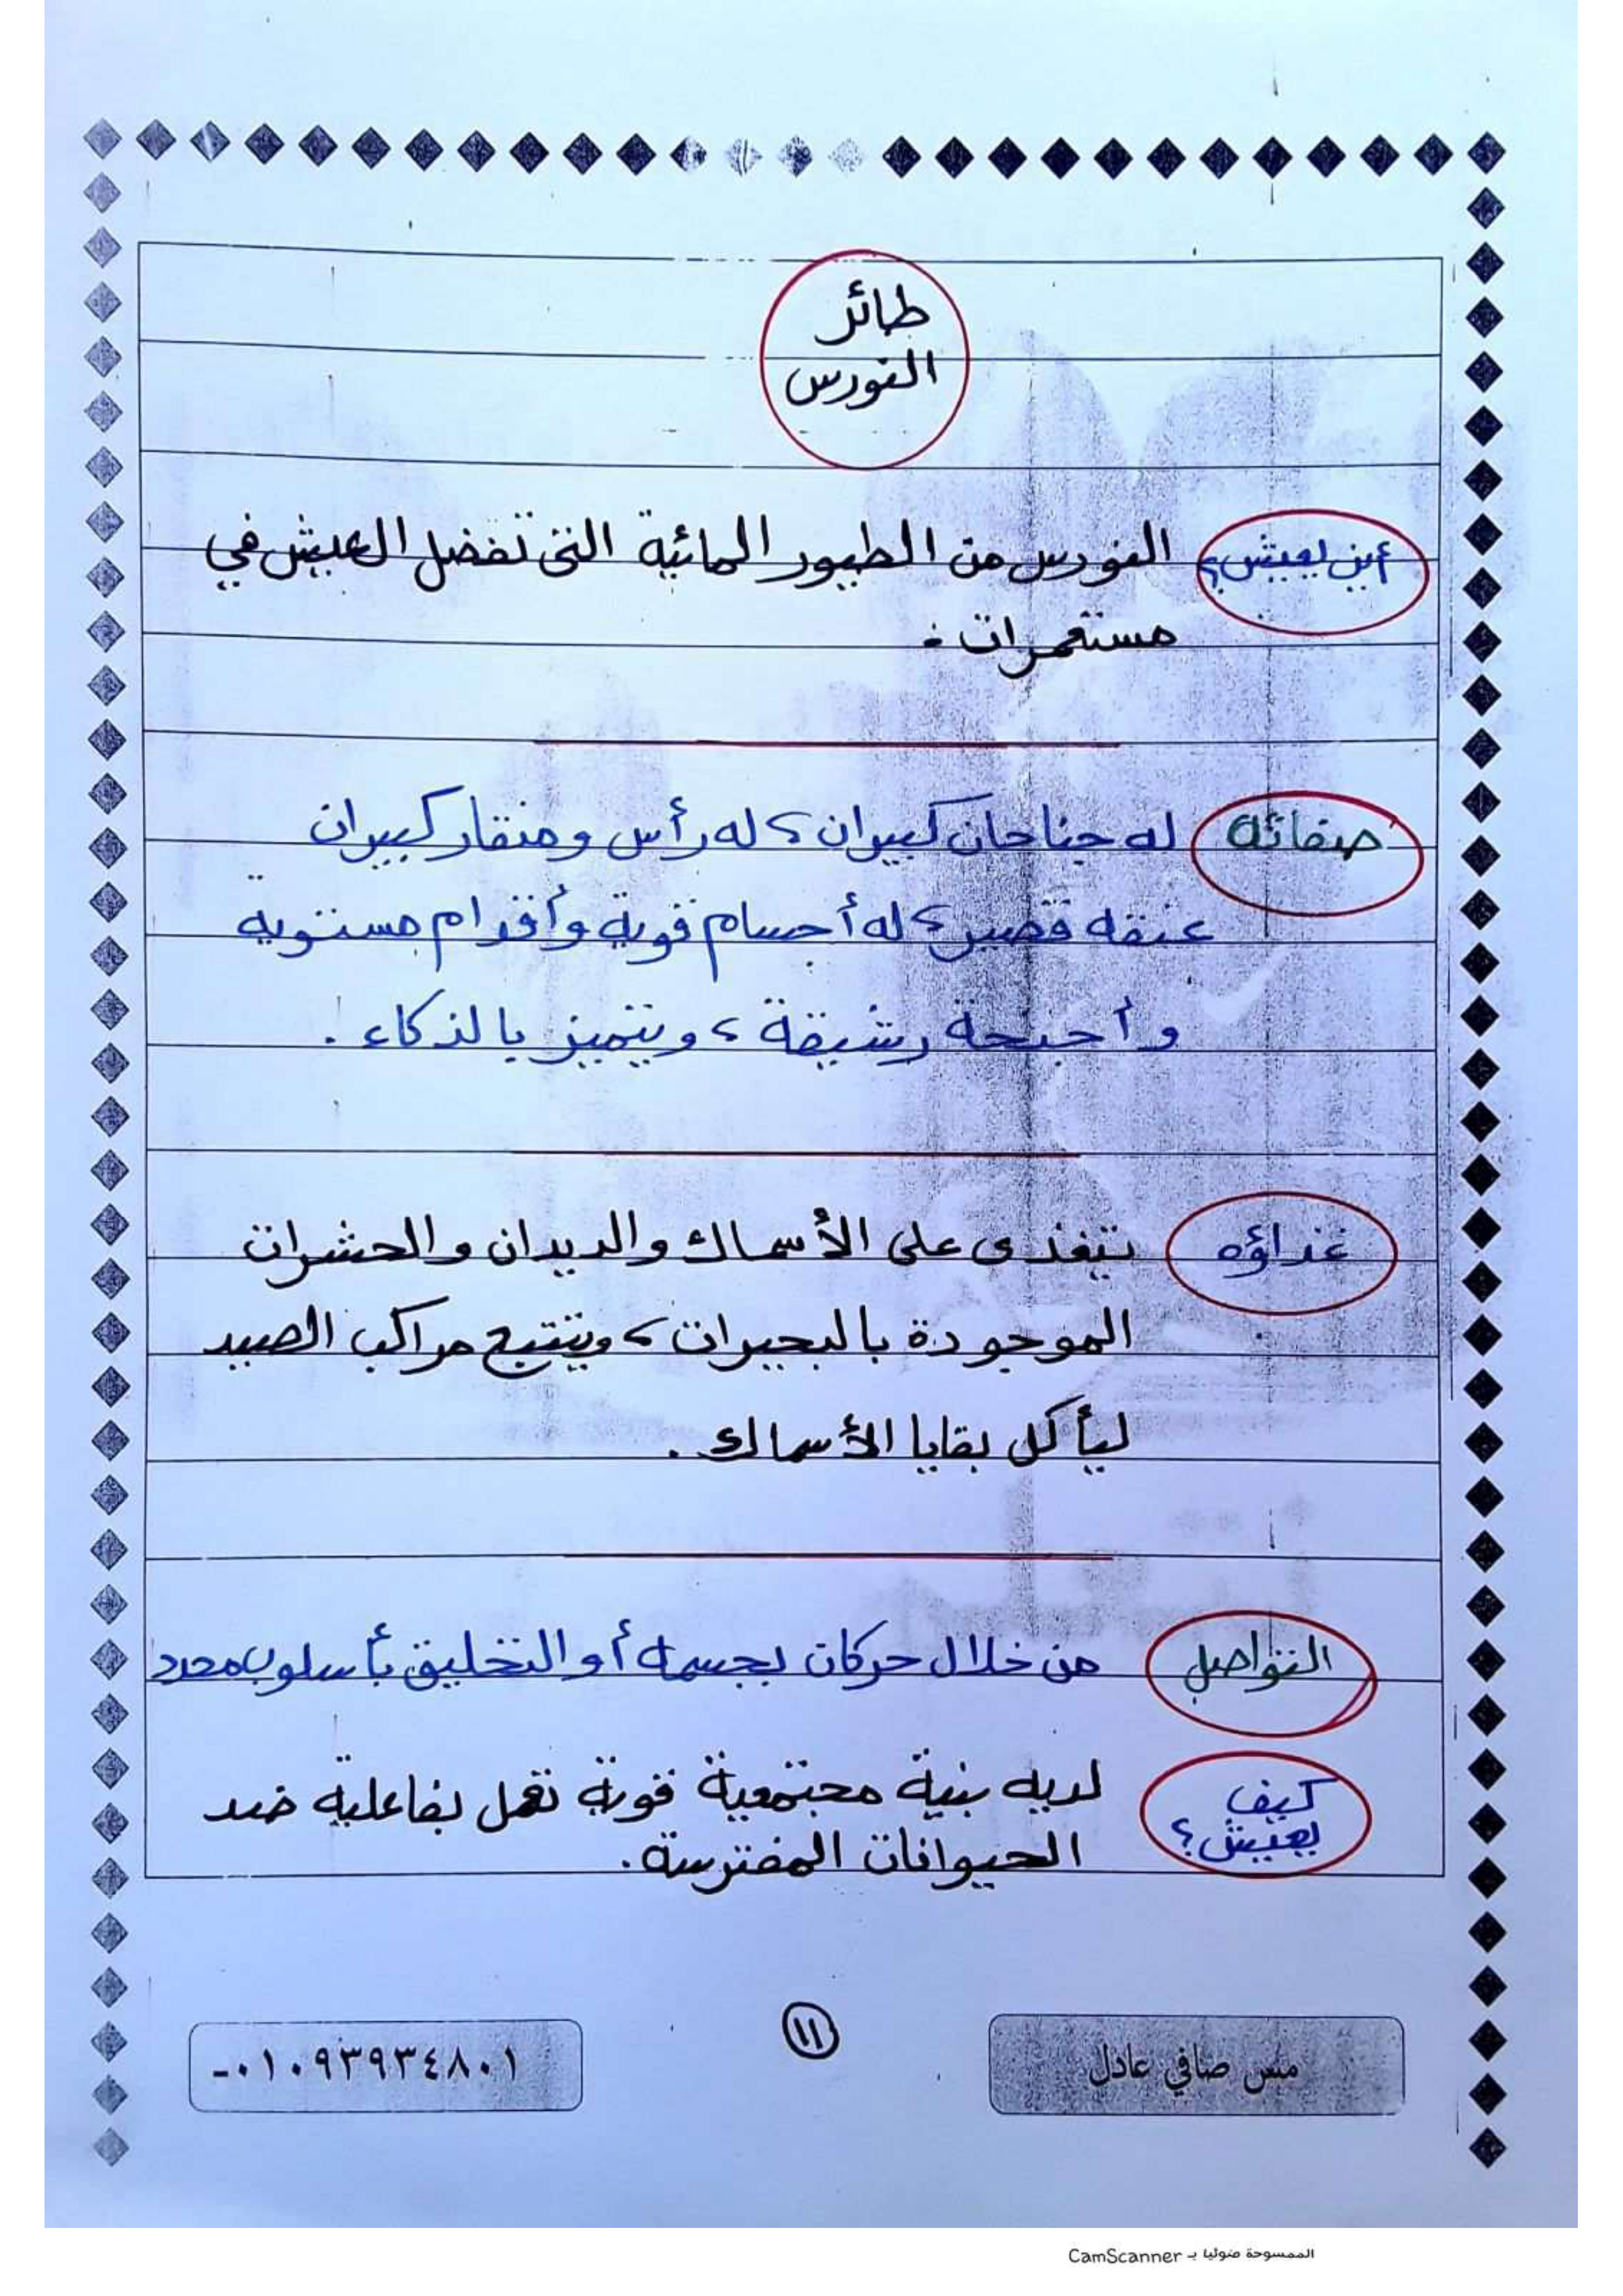 طائر
النورس
أين يعيش؟ النورس من الطيور المائية التى تفضل العيش في
مستعمرات .
صفاته له جناحان كبيران ، له رأس ومنقار كبيران
عنقه قصير ، له أجسام قوية وأقدام مستوية
وأجنحة رشيقة ، ويتميز بالذكاء .
غذاؤه يتغذى على الأسماك والديدان والحشرات
الموجودة بالبحيرات ، ويتتبع مراكب الصيد
ليأكل بقايا الأسماك .
التواصل من خلال حركات بجسمه أو التحليق بأسلوب محدد
كيف يعيش؟ لديه بنية مجتمعية قوية تعمل بفاعلية ضد
الحيوانات المفترسة .
مس صافي عادل
١١
٠١٠٩٣٩٣٤٨٠١-
الممسوحة ضوئيا بـ CamScanner